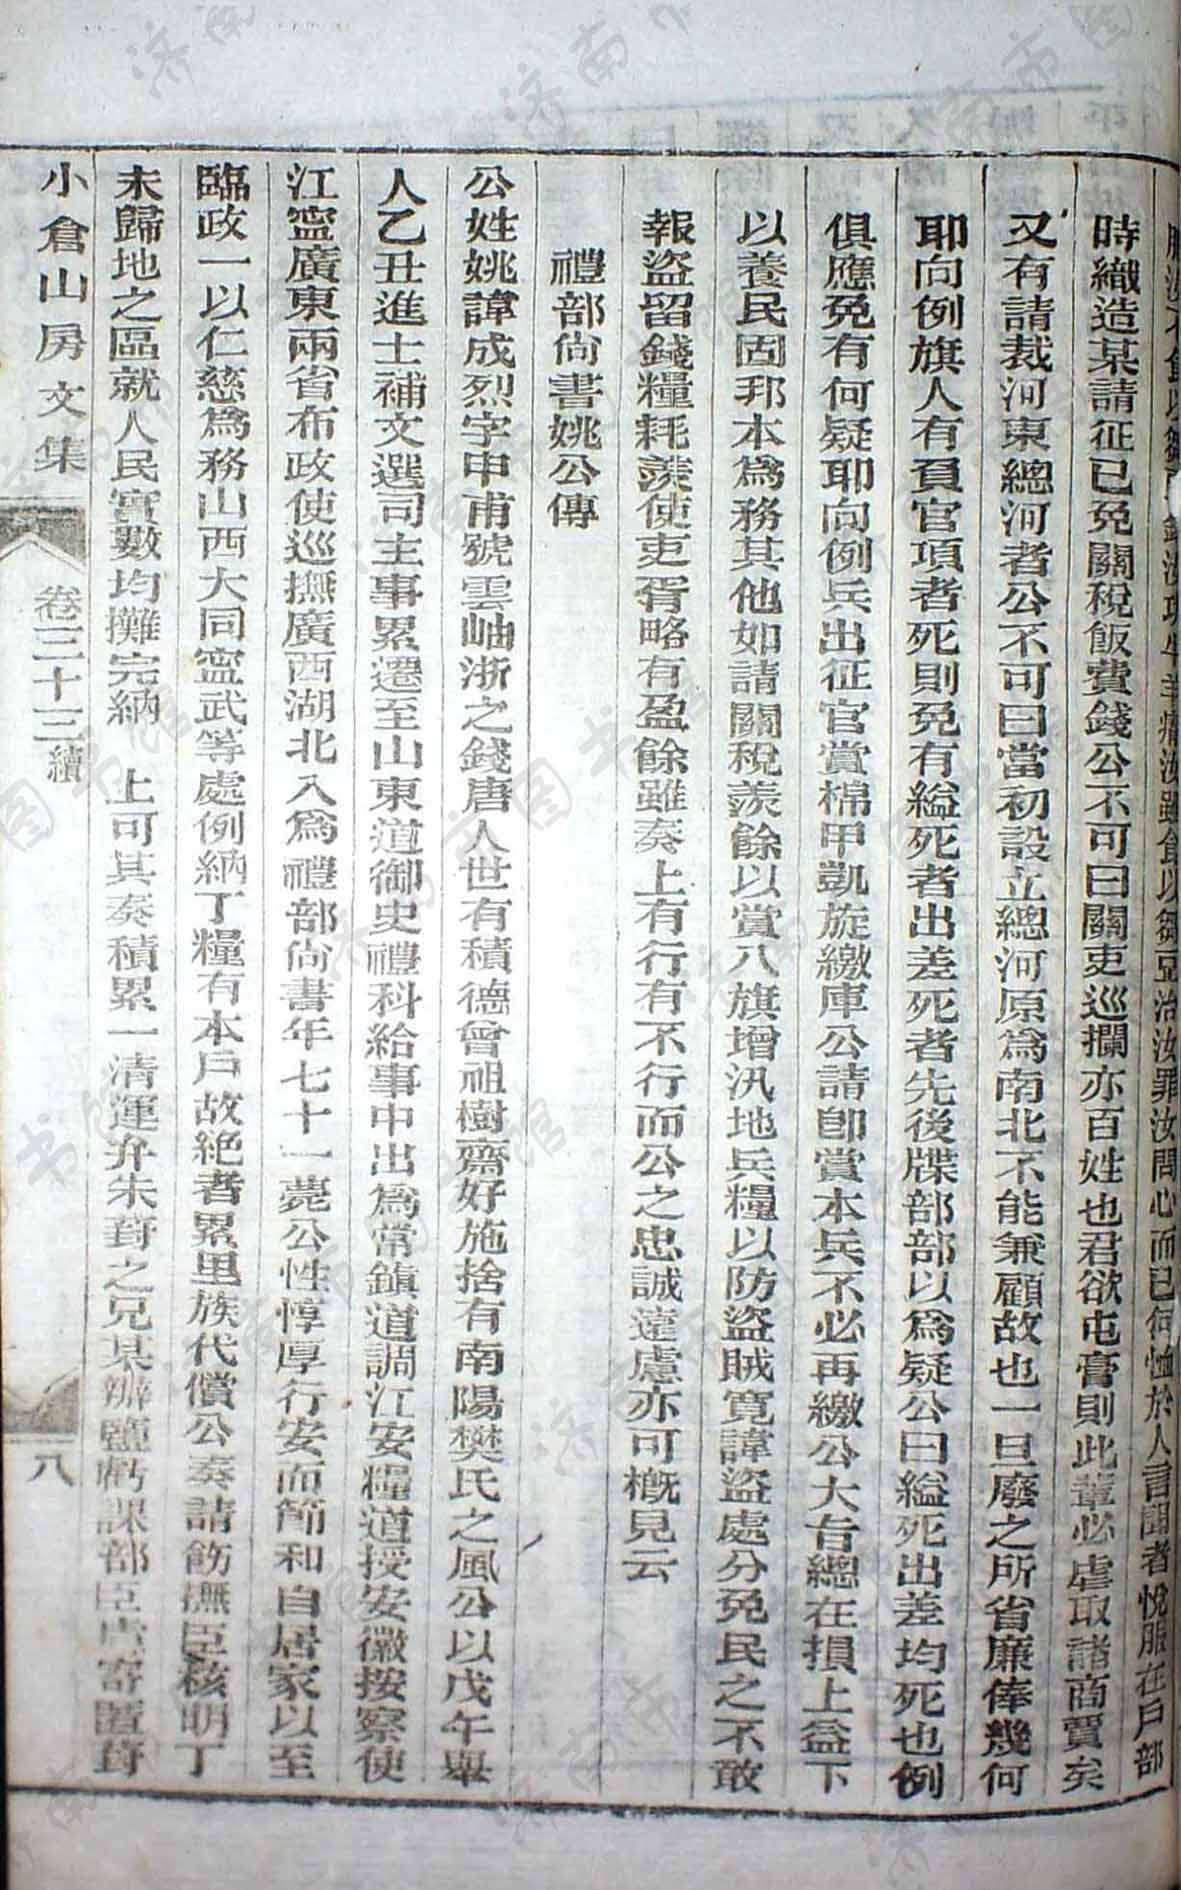 食以芻汝雖食以芻亞治汝罪汝問心而已何恤於人言聞者悅服在戶部
時織造某請征已免關稅飯費錢公不可曰關吏巡攔亦百姓也君欲屯膏則此輩必虐取諸商賈矣
又有請裁河東總河者公不可曰當初設立總河原為南北不能兼顧故也一旦廢之所省廉俸幾何
耶向例旗人有負官項者死則免有縊死者出差死者先後牒部部以為疑公曰縊死出差均死也例
俱應免有何疑耶向例兵出征官賞棉甲凱旋繳庫公請卽賞本兵不必再繳公大旨總在損上益下
以養民固邦本為務其他如請關稅羨餘以賞八旗增汛地兵糧以防盜賊寬諱盜處分免民之不敢
報盜留錢糧耗羨使吏胥略有盈餘雖奏上有行有不行而公之忠誠遠慮亦可槪見云
禮部尙書姚公傳
公姓姚諱成烈字申甫號雲岫浙之錢唐人世有積德曾祖樹齋好施捨有南陽樊氏之風公以戊午舉
人乙丑進士補文選司主事累遷至山東道御史禮科給事中出為常鎭道調江安糧道授安徽按察使
江寧廣東兩省布政使巡撫廣西湖北入為禮部尙書年七十一薨公性惇厚行安而節和自居家以至
臨政一以仁慈為務山西大同寧武等處例納丁糧有本戶故絕者累里族代償公奏請飭撫臣核明丁
未歸地之區就人民實數均攤完納　上可其奏積累一清運弁朱葑之兄某辦鹽虧課部臣慮寄匿葑
小倉山房文集
卷三十三續
八